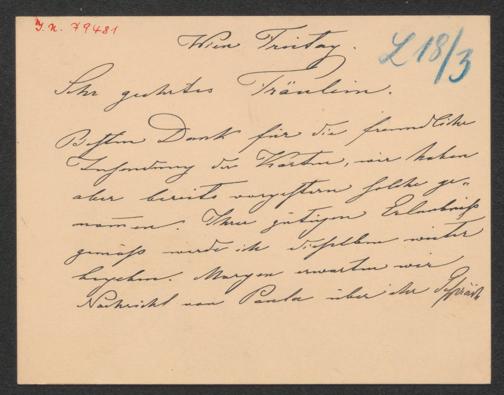 J.N. 79481
L 18/3
Wien Freitag.
Sehr geehrtes Fräulein.
Besten Dank für die freundliche
Zusendung der Karten, wir haben
aber bereits vorgestern solche ge-
nommen. Ihrer gütigen Erlaubniß
gemäß werde ich dieselben weiter
begeben. Morgen erwarten wir
Nachricht von Paula über ihr